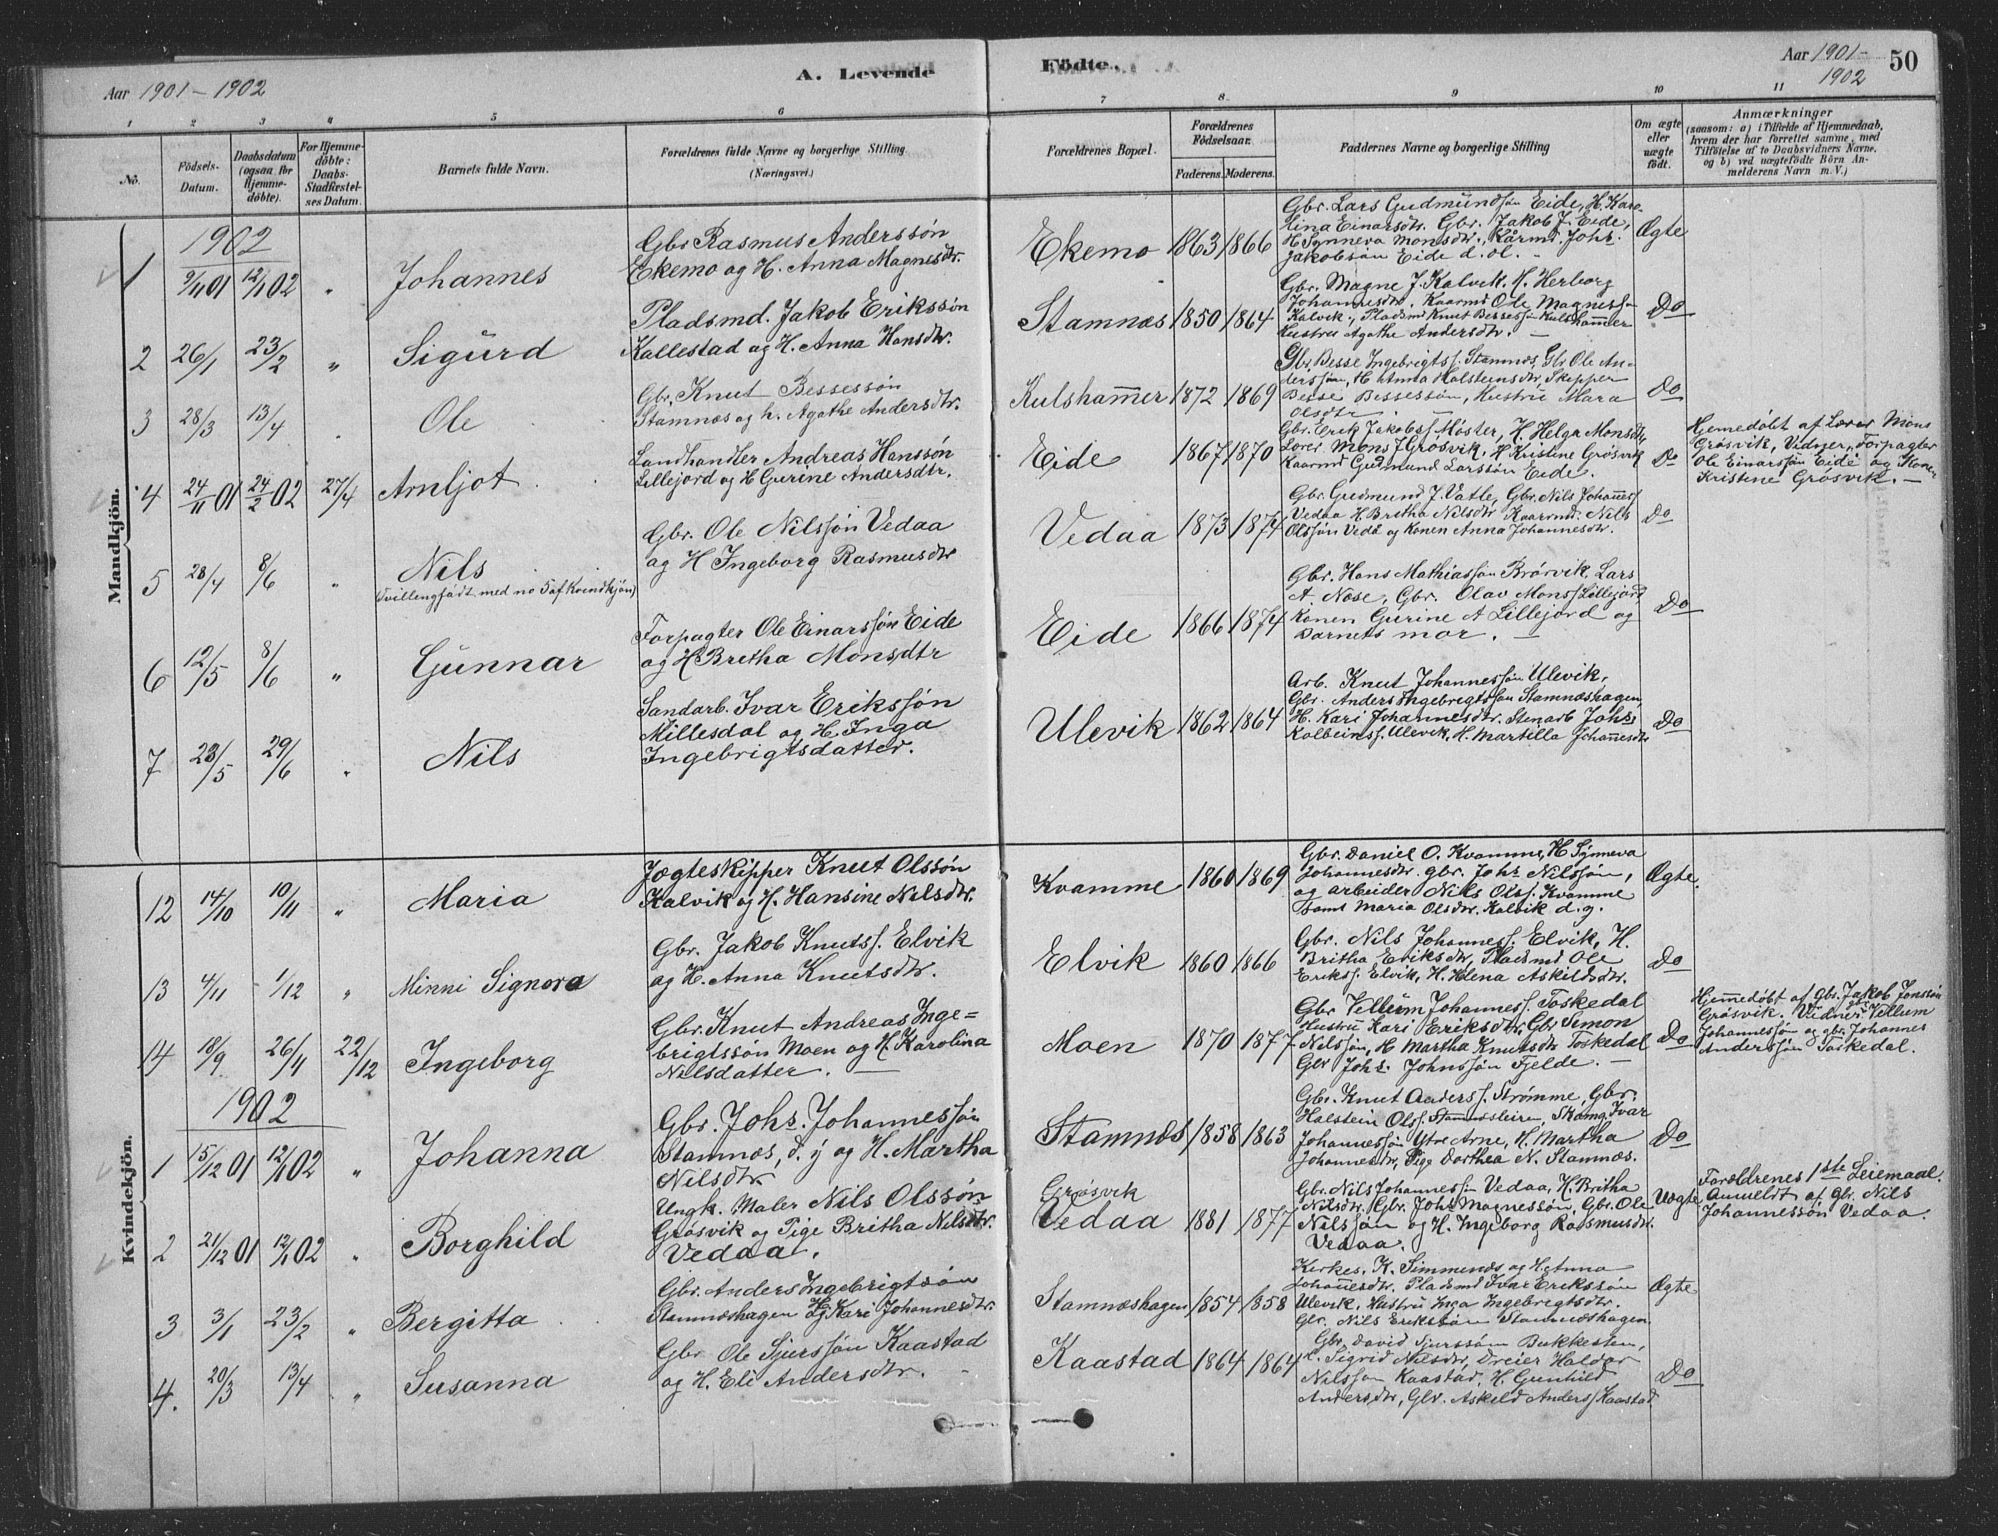 Aar 1901 - 1902
A. Levende
Födte.
Aar 1901 -
1902
50
1
2
3
4
5
6
7
8
9
10
11
No.
Födsels-
Datum.
Daabsdatum
(ogsaa for
Hjemme-
döbte).
For Hjemme-
döbte:
Daabs-
Stadfæstel-
ses Datum.
Barnets fulde Navn.
Forældrenes fulde Navne og borgerlige Stilling
(Næringsvei.)
Forældrenes Bopæl.
Forældrenes
Födselsaar.
Faderens.
Moderens.
Faddernes Navne og borgerlige Stilling
Om ægte
eller
uægte
födt.
Anmærkninger
(saasom: a) i Tilfælde af Hjemmedaab,
hvem der har forrettet samme, med
Tilföielse af to Daabsvidners Navne,
og b) ved uægtefödte Börn An-
melderens Navn m. V.)
Mandkjön.
1902
1
9/11 01
12/1 02
"
Johannes
Gbr Rasmus Anderssøn
Ekemo og H. Anna Magnesdtr.
Ekemo
1863
1866
Gbr. Lars Gudmundssøn Eide, H. Karo-
lina Einarsdtr. Gbr. Jakob J. Eide,
H Synneva Monsdtr., Kårmd Johs.
Jakobsøn Eide d. ol. -
Ægte
2
26/1
23/2
"
Sigurd
Pladsmd. Jakob Erikssøn
Kallestad og H. Anna Hansdtr.
Stamnæs
1850
1864
Gbr. Magne J. Kalvik, H. Herborg
Johannesdtr. Kaarmd Ole Magnessøn
Kalvik., Pladsmd Knut Bessesøn Kulshammer
Hustru Agathe Andersdtr.
Do
3
28/3
13/4
"
Ole
Gbr. Knut Bessessøn
Stamnæs og h. Agathe Andersdtr.
Kulshammer
1872
1869
Gbr. Besse Ingebrigts. Stamnæs, Gbr Ole An-
derssøn, H Anna Halsteinsdtr, Skipper
Besse Bessessøn, Hustru Mara
Olsdtr
Do
4
24/11 01
24/2 02
27/4
Arnljot
Landhandler Andreas Hanssøn
Lillejord og H Gurine Andersdtr.
Eide
1867
1870
Gbr. Erik Jakobss Møster, H. Helga Monsdtr,
Lærer Mons J Grøsvik, H Kristine Grøsvik
Kaarmd Gudmund Larssøn Eide.
Do
Hjemedøbt af Lærer Mons
Grøsvik, Vidner, Forpagter
Ole Einarssøn Eide og Konen
Kristine Grøsvik. -
5
28/4
8/6
"
Nils
(Tvillengfødt med no 5 af Kvindkjøn)
Gbr. Ole Nilssøn Vedaa
og H Ingeborg Rasmusdtr
Vedaa
1873
1874
Gbr. Gudmund J. Vatle, Gbr. Nils Johannes
Vedaa H. Bretha Nilsdtr Kaarmd. Nils
Olssøn Vedå og Konen Anna Johannesdtr.
Do
6
12/5
8/6
"
Gunnar
Forpagter Ole Einarssøn Eide
og H Bretha Monsdtr
Eide
1866
1874
Gbr. Hans Mathiassøn Brørvik, Lars
A. Nese, Gbr. Olav Monss Lillejord,
Konen Gurine A Lillejord og
barnets mor. -
Do
7
23/5
29/6
"
Nils
Sandarb. Ivar Erikssøn
Millesdal og H. Inga
Ingebrigtsdatter.
Ulevik
1862
1864
Arb. Knut Johannessøn Ulevik,
Gbr. Anders Ingebrigtssøn Stamnæshagen,
H. Kari Johannesdtr. Stenarb Johs
Kolbeins. Ulevik, H. Martilla Johannesdtr
Do
Kvindekjön.
12
14/10
10/11
"
Maria
Jægteskipper Knut Olssøn
Kalvik og H. Hansine Nilsdtr.
Kvamme
1860
1869
Gbr. Daniel O. Kvamme, H Synneva
Johannesdtr. gbr. Johs Nilssøn,
og arbeider Nils Olss. Kvamme
samt Maria Olsdtr. Kalvik d.y.
Ægte.
13
4/11
1/12
"
Minni Signora
Gbr. Jakob Knutss. Elvik
og H. Anna Knutsdtr.
Elvik
1860
1866
Gbr. Nils Johanness. Elvik, H.
Britha Eriksdtr, Pladsmd Ole
Erikss. Elvik, H. Helena Askildsdtr.
Do
14
18/9
26/11
22/12
Ingeborg
Gbr. Knut Andreas Inge=
brigtssøn Moen og H Karolina
Nilsdatter. -
Moen
1870
1877
Gbr Vellum Johanness. Toskedal
Hustru Kari Eriksdtr, Gbr Simon
Nilssøn, H Martha Knutsdtr Toskedal
Gbr Johs. Johnssøn Fjelde. -
Do
Hjemmedøbt af Gbr. Jakob Jonssøn
Grøsvik. Vidner Vellum
Johannessøn og gbr. Johannes
Anderssøn Toskedal.
1902
1
15/12 01
12/1 02
"
Johanna
Gbr. Johs. Johannessøn
Stamnæs, d. y og H. Martha
Nilsdtr.
Stamnæs
1858
1863
Gbr. Knut Anderss. Strømme, Gbr.
Halstein Olss. Stamnæsleiren, Skomg. Ivar
Johannessøn Ytre Arne, H. Martha
Johannesdtr, Pige Dorthea N. Stamnæs.
Do
2
21/12 01
12/1 02
"
Borghild
Ungk. Maler Nils Olssøn
Grøsvik og Pige Britha Nilsdtr.
Vedaa.
Grøsvik
Vedaa
1881
1877
Gbr. Nils Johannessøn Vedaa, H. Britha
Nilsdtr. Gbr. Johs Magnessøn, Gbr. Ole
Nilssøn og H. Ingeborg Rasmusdtr.
Vedaa.
Uægte
Forældrenes 1ste Leiemaal.
Anmeldt af Gbr. Nils
Johannessøn Vedaa.
3
3/1
23/2
"
Bergitta
Gbr. Anders Ingebrigtsøn
Stamnæshagen og Kari Johannesdtr.
Stamnæshagen
1854
1858
Kirkes. K. Simmenæs og H. Anna
Johannesdtr. Pladsmd Ivar Erikssøn
Ulevik, Hustru Inga Ingebrigtsdtr.
Gbr. Nils Erikssøn Stamnæshagen.
Ægte
4.
20/3
13/4
"
Susanna
Gbr Ole Sjurssøn Kaastad
og H. Eli Andersdtr. -
Kaastad
1864
1864
Gbr. David Sjurssøn Bukkesten,
H. Sigrid Nilsdtr, Dreier Haldor
Nilssøn Kaastad, H. Gunhild
Andersdtr, Gbr. Askeld Anderss Kaastad
Do